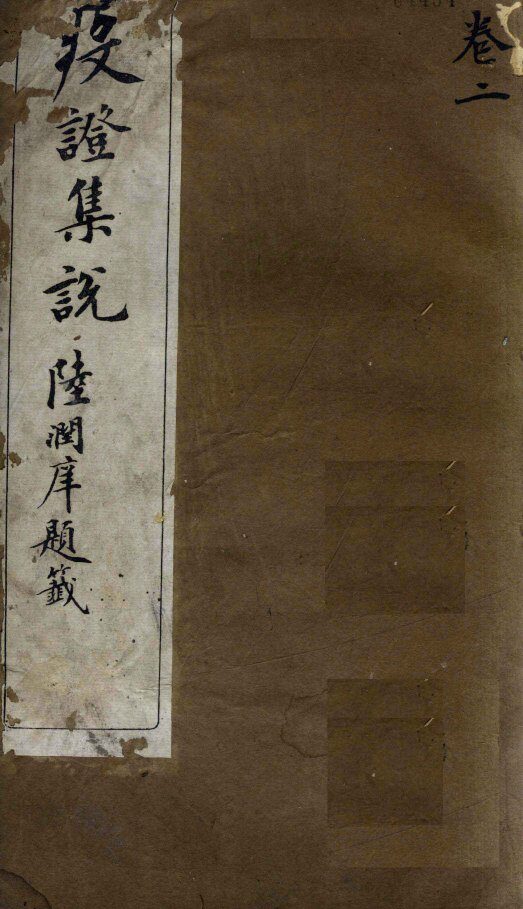 卷二
疫證集說
陸潤庠題籤